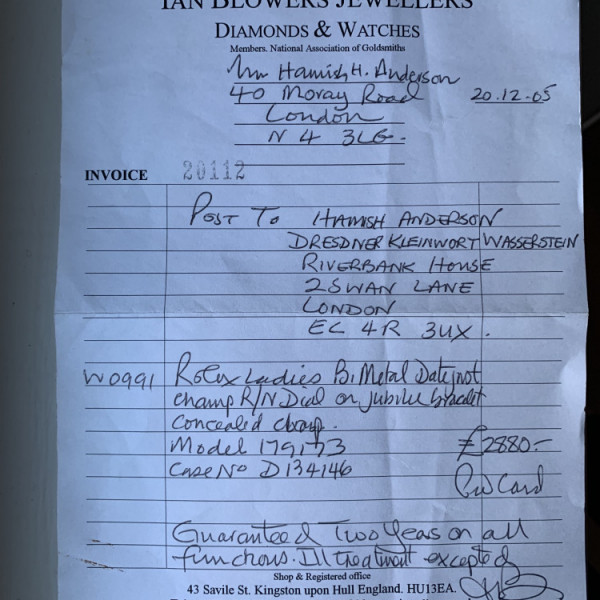 IAN BLOWERS JEWELLERS
DIAMONDS & WATCHES
Members. National Association of Goldsmiths
Mr Hamish H. Anderson
40 Moray Road 20.12-05
London
N4 3LG.
INVOICE 20112
POST TO HAMISH ANDERSON
DRESDNER KLEINWORT WASSERSTEIN
RIVERBANK HOUSE
2 SWAN LANE
LONDON
EC 4R 3UX.
W0991 Rolex Ladies Bi Metal Datejust
champ R/N Dial on Jubilee bracelet
concealed clasp.
Model 179173 £2880-
Case No D134146
Pd Card
Guaranteed Two Years on all
functions. Ill treatment excepted
Shop & Registered office
43 Savile St. Kingston upon Hull England. HU13EA.